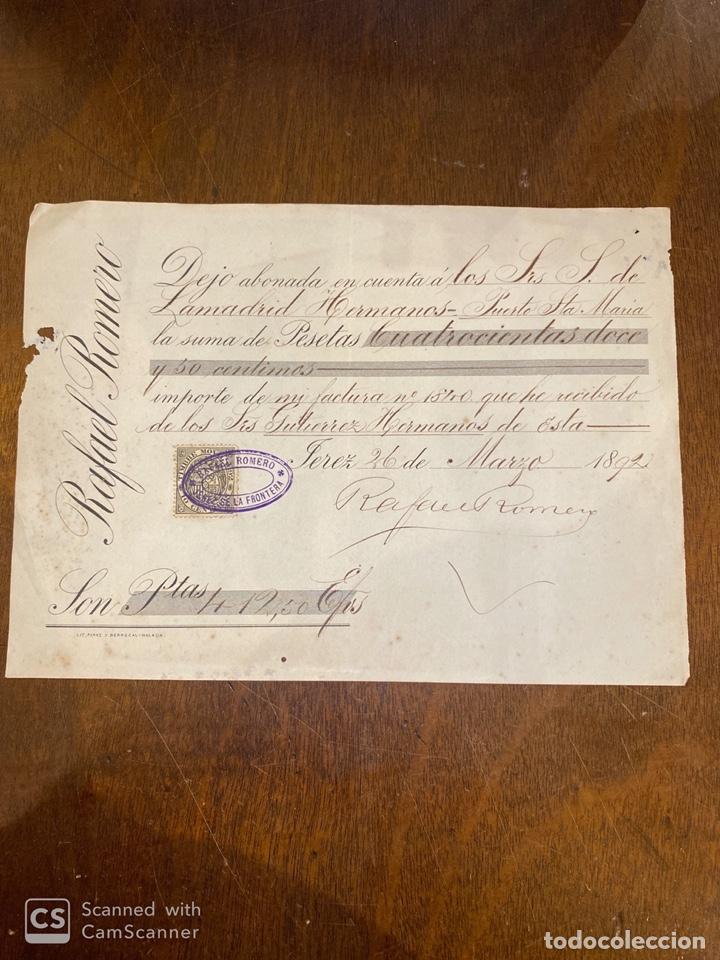 Rafael Romero
Dejo abonada en cuenta á los Srs S. de
Lamadrid Hermanos - Puerto Sta Maria
la suma de Pesetas Cuatrocientas doce
y 50 centimos
importe de my factura nº 1840 que he recibido
de los Srs Gutierrez Hermanos de esta
Jerez 26 de Marzo 1892
TIMBRE MO
10 CEN
RAFAEL ROMERO
JEREZ DE LA FRONTERA
Rafael Romero
Son Ptas 412,50 Cts
LIT. PEREZ Y BERROCAL-MALAGA.
CS
Scanned with
CamScanner
todocoleccion